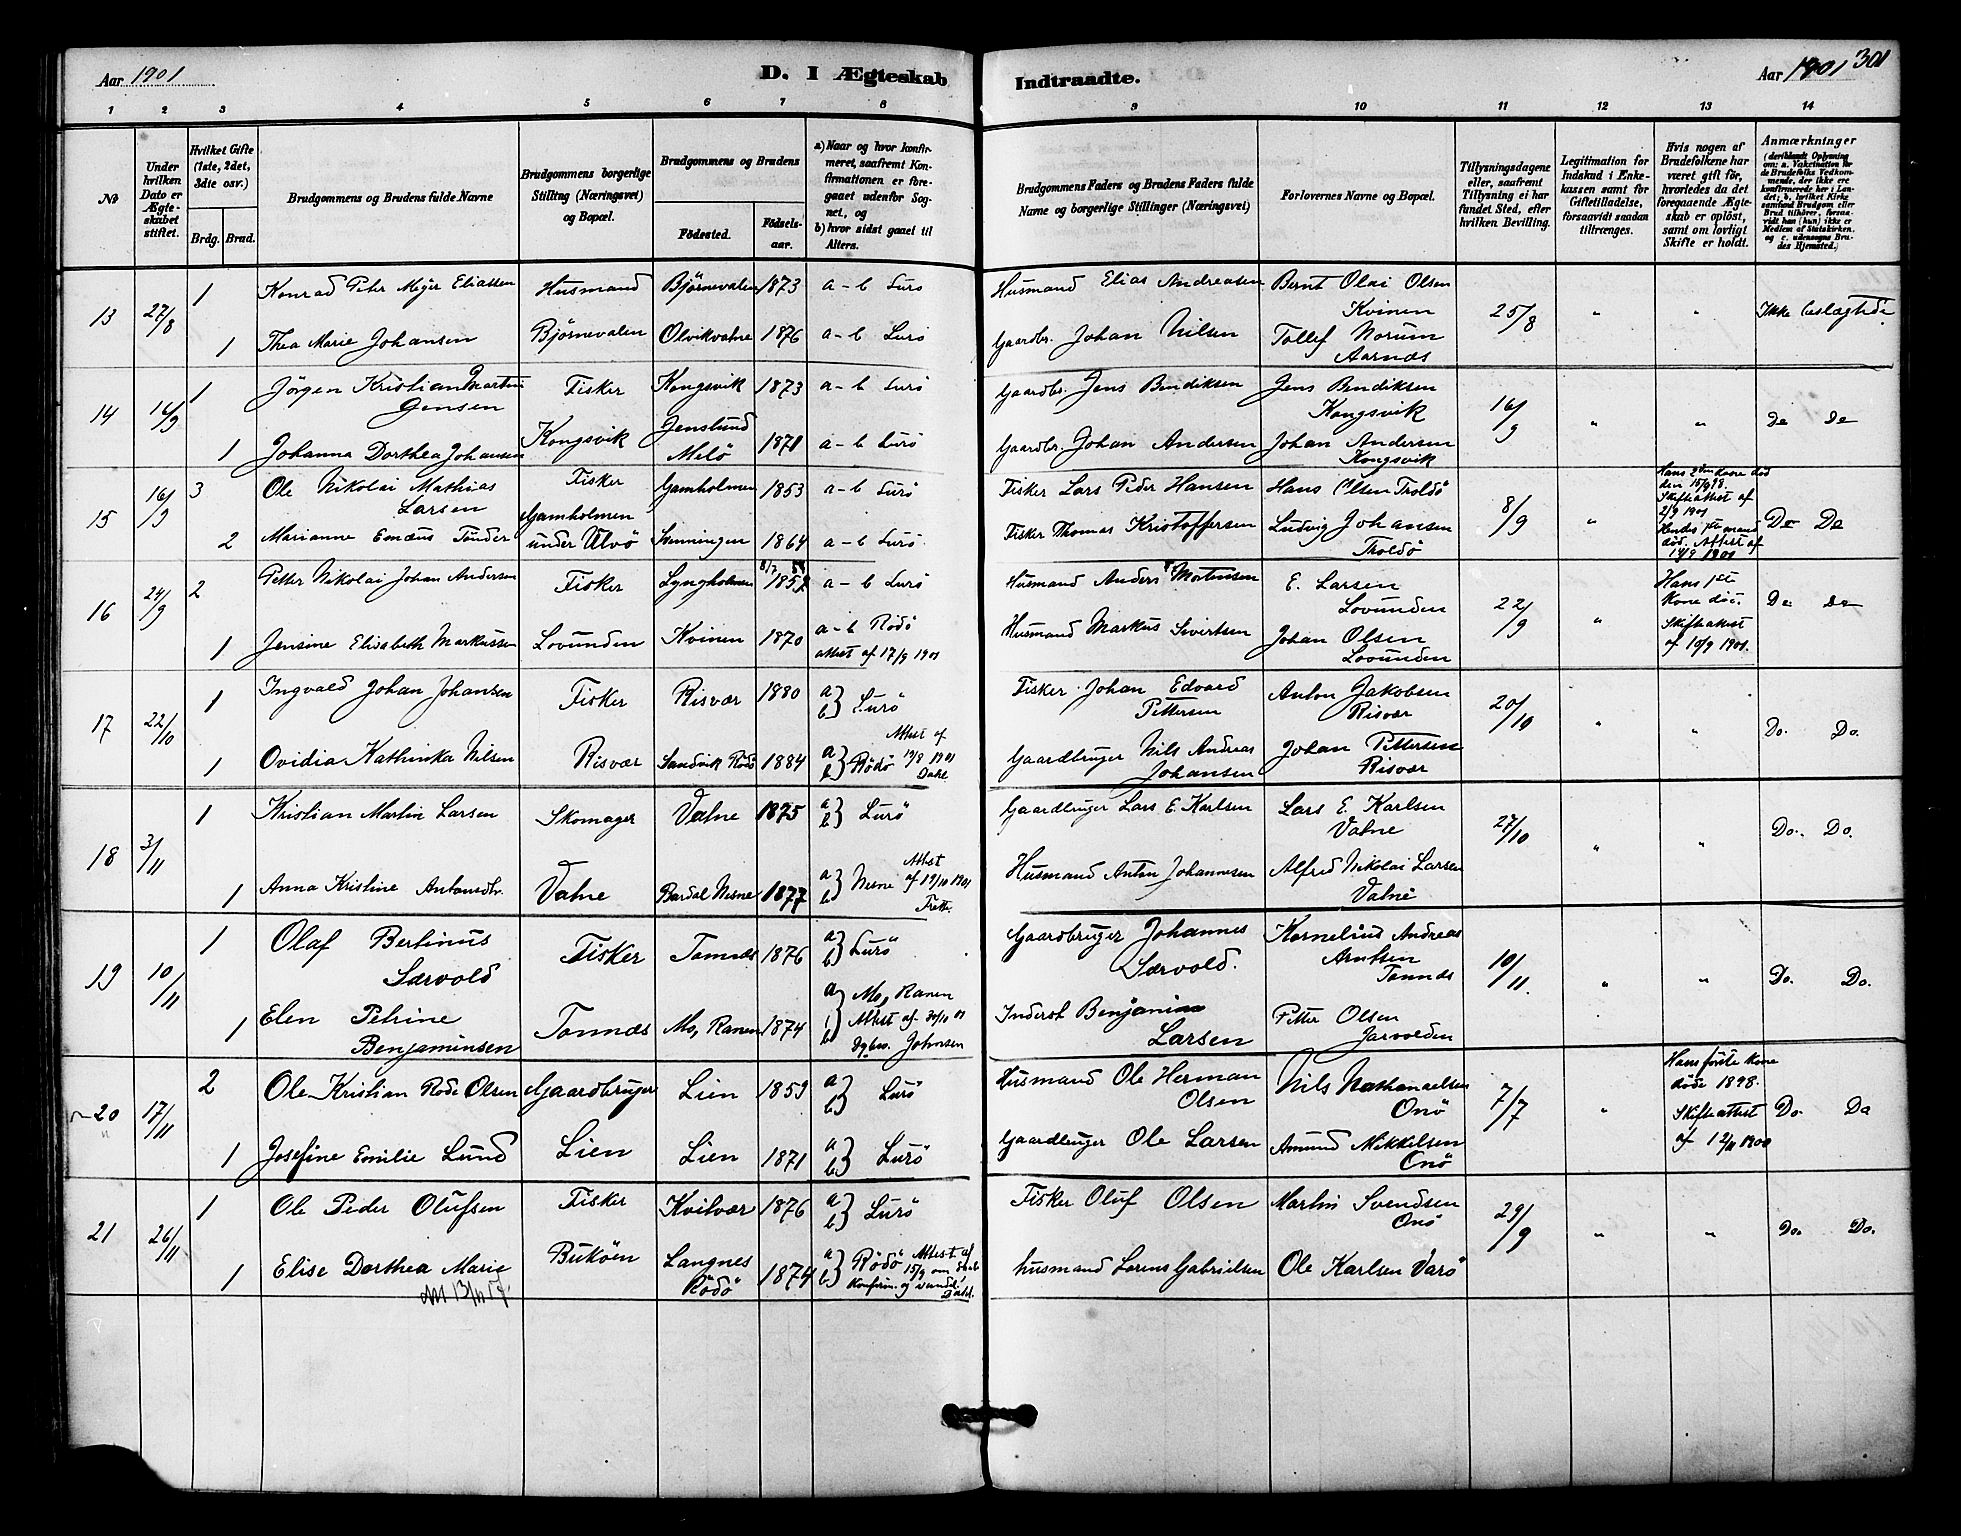 Aar 1901
D. I Ægteskab
Indtraadte.
Aar 1901 301
1 2 3 4 5 6 7 8 9 10 11 12 13 14
No
Under hvilken Dato er Ægteskabet stiftet.
Hvilket Gifte (1ste, 2det, 3die osv.)
Brdg. Brud.
Brudgommens og Brudens fulde Navne
Brudgommens borgerlige Stilling (Næringsvei) og Bopæl.
Brudgommens og Brudens
Födested.
Födsels-aar.
a) Naar og hvor konfirmeret, saafremt Konfirmationen er foregaaet udenfor Sognet, og
b) hvor sidst gaaet til Alters.
Brudgommens Faders og Brudens Faders fulde Navne og borgerlige Stillinger (Næringsvei)
Forlovernes Navne og Bopæl.
Tillysningsdagene eller, saafremt Tillysning ei har fundet Sted, efter hvilken Bevilling.
Legitimation for Indskud i Enkekassen samt for Giftetilladelse, forsaavidt saadan tiltrænges.
Hvis nogen af Brudefolkene har været gift för, hvorledes da det foregaaende Ægteskab er oplöst, samt om lovligt Skifte er holdt.
Anmærkninger
13 27/8 1 Konrad Peter Meyer Eliassen Husmand Björnevalen 1873 a-b Lurö Husmand Elias Andreasen Bernt Olai Olsen Kvinen 25/8 " " Ikke beslægtede
1 Thea Marie Johansen Björnevalen Olvikvatne 1876 a-b Lurö Gaardbr. Johan Nilsen Tollef Norum Aarnæs
14 16/9 1 Jörgen Kristian Martin Jensen Fisker Kongsvik 1873 a-b Lurö Gaardbr. Jens Bendiksen Jens Bendiksen Kongsvik 16/9 " " Do Do
1 Johanna Dorthea Johansen Kongsvik Jenslund Melö 1871 a-b Lurö Gaardbr. Johan Andersen Johan Andersen Kongsvik
15 16/9 3 Ole Nikolai Mathias Larsen Fisker Gamholmen 1853 a-b Lurö Fisker Lars Peder Hansen Hans Olsen Troldö 8/9 " Hans 2den kone död den 15/9 98. Skifteattest af 2/9 1901 Do Do
2 Marianne Emæus Tönder Gamholmen under Alvö Svenningen 1864 a-b Lurö Fisker Thomas Kristoffersen Ludvig Johansen Troldö Hendes 1ste mand död. Attest af 14/9 1901
16 24/9 2 Petter Nikolai Johan Andersen Fisker Lyngholmen 8/7 1852 a-b Lurö Husmand Anders Mortensen E. Larsen Lovunden 22/9 " Hans 1ste Kone död. Skifteattest af 10/9 1901. Do Do
1 Jensine Elisabeth Markussen Lovunden Kvinen 1870 a-b Rödö attest af 17/9 1901 Husmand Markus Sivertsen Johan Olsen Lovunden
17 22/10 1 Ingvald Johan Johansen Fisker Risvær 1880 a b} Lurö Fisker Johan Edvard Pettersen Anton Jakobsen Risvær 20/10 " " Do. Do.
1 Ovidia Kathinka Nilsen Risvær Sandvik Rödö 1884 a b} Rödö Attest af 19/8 1901 Gaardbruger Nils Andreas Johansen Johan Pettersen Risvær
18 3/11 1 Kristian Martin Larsen Skomager Vatne 1875 a b} Lurö Gaardbruger Lars E. Karlsen Lars E. Karlsen Vatne 27/10 " " Do. Do.
1 Anna Kristine Antonsdtr. Vatne Bardal Nesne 1877 a b} Nesne Attest af 19/10 1901 Husmand Anton Johannesen Alfred Nikolai Larsen Vatne
19 10/11 1 Olaf Bertinus Særvold Fisker Tonnæs 1876 a b} Lurö Gaardbruger Johannes Særvold. Kornelius Andreas Arntsen Tonnæs 10/11. " " Do. Do.
1 Elen Petrine Benjaminsen Tonnæs Mo, Ranen 1874 a b} Mo, Ranen Attest af 30/10 01 Johnsen Inderst Benjamin Larsen Petter Olsen Jarvolden
20 17/11 2 Ole Kristian Röde Olsen Gaardbruger Lien 1859 a b} Lurö Husmand Ole Herman Olsen Nils Nathanaelsen Onö 7/7 " Hans förste kone döde 1898. Skifteattest af 12/11 1900 Do. Do
1 Josefine Emilie Lund Lien Lien 1871 a b} Lurö Gaardbruger Ole Larsen Amund Mikkelsen Onö
21 26/11 1 Ole Peder Olufsen Fisker Kvitvær 1876 a b} Lurö Fisker Oluf Olsen Martin Svendsen Onö 29/9 " " Do. Do.
1 Elise Dorthea Marie Buköen Langnes Rödö 1874 a b} Rödö Attest af 15/9 om Konfirm. og Husmand Lorens Gabrielsen Ole Karlsen Varö